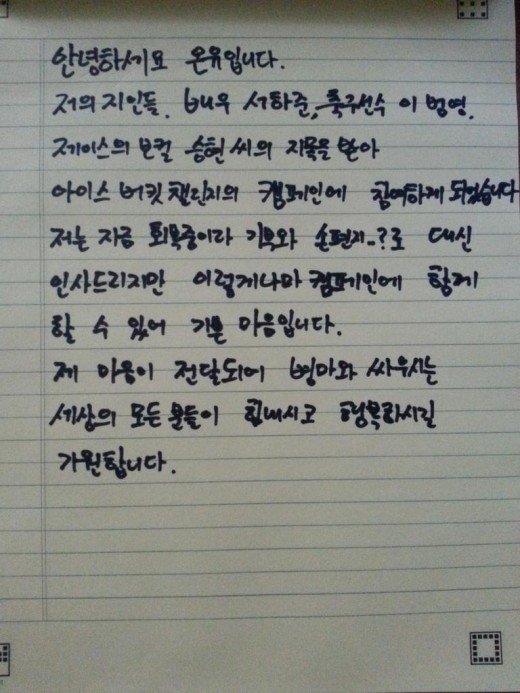 안녕하세요 온유입니다.
저의 지인들. 배우 서하준, 축구선수 이범영.
제이스의 보컬 승현씨의 지목을 받아
아이스 버킷 챌린지의 캠페인에 참여하게 되었습니다
저는 지금 회복중이라 기부와 손편지..?로 대신
인사드리지만 이렇게나마 캠페인에 함께
할 수 있어 기쁜 마음입니다.
제 마음이 전달되어 병마와 싸우시는
세상의 모든 분들이 힘내시고 행복하시길
기원합니다.